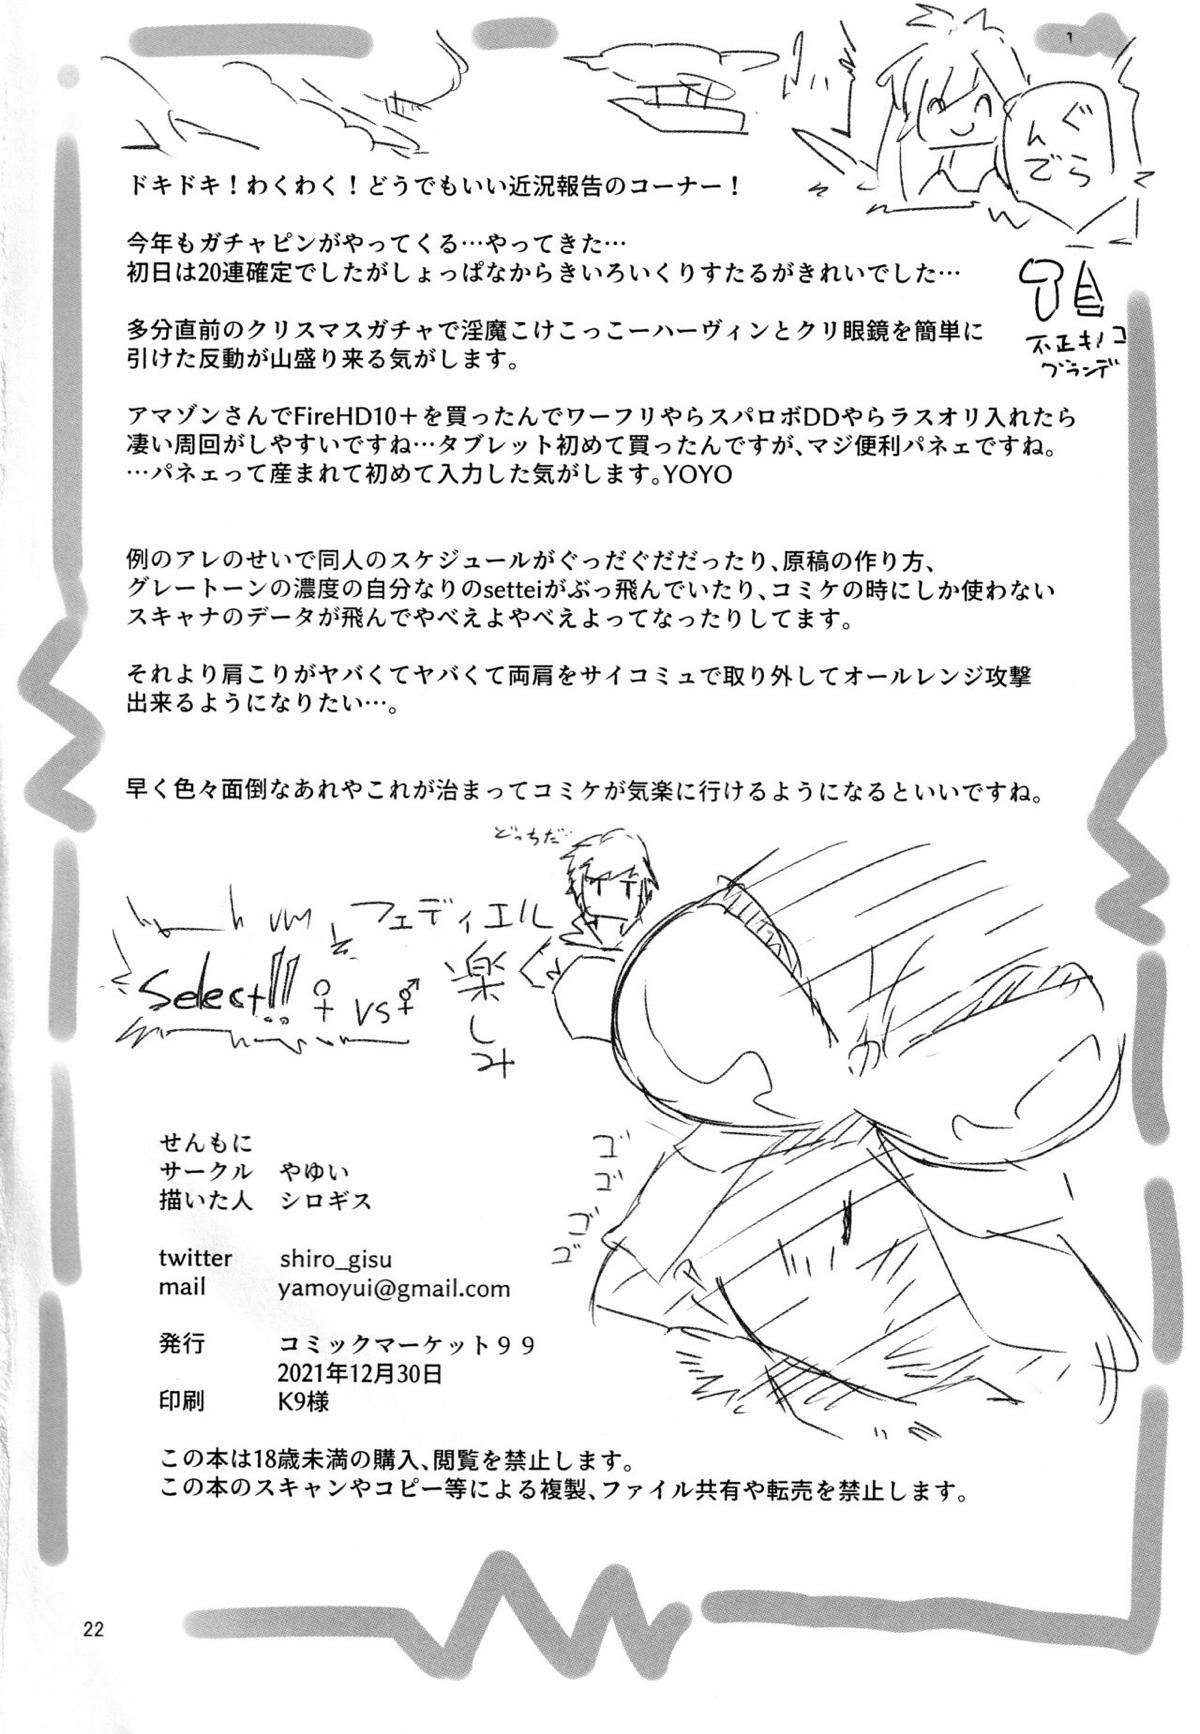 ぐらんでの
不正キノコ
グランデ
ドキドキ！わくわく！どうでもいい近況報告のコーナー！
今年もガチャピンがやってくる…やってきた…
初日は20連確定でしたがしょっぱなからきいろいくりすたるがきれいでした…
多分直前のクリスマスガチャで淫魔こけこっこーハーヴィンとクリ眼鏡を簡単に
引けた反動が山盛り来る気がします。
アマゾンさんでFireHD10＋を買ったんでワーフリやらスパロボDDやらラスオリ入れたら
凄い周回がしやすいですね…タブレット初めて買ったんですが、マジ便利パネェですね。
…パネェって産まれて初めて入力した気がします。YOYO
例のアレのせいで同人のスケジュールがぐっだぐだだったり、原稿の作り方、
グレートーンの濃度の自分なりのsetteiがぶっ飛んでいたり、コミケの時にしか使わない
スキャナのデータが飛んでやべえよやべえよってなったりしてます。
それより肩こりがヤバくてヤバくて両肩をサイコミュで取り外してオールレンジ攻撃
出来るようになりたい…。
早く色々面倒なあれやこれが治まってコミケが気楽に行けるようになるといいですね。
どっちだ…
フェディエル
楽しみ
Select!! ♀ vs ⚥
ゴゴゴゴ
せんもに
サークル　やゆい
描いた人　シロギス
twitter shiro_gisu
mail yamoyui@gmail.com
発行　コミックマーケット９９
2021年12月30日
印刷　K9様
この本は18歳未満の購入、閲覧を禁止します。
この本のスキャンやコピー等による複製、ファイル共有や転売を禁止します。
22